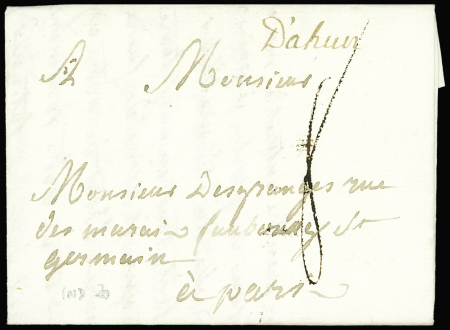 D'ahun
A Monsieur
8
Monsieur Desgranges rue
des marais faubourg St
germain
à paris